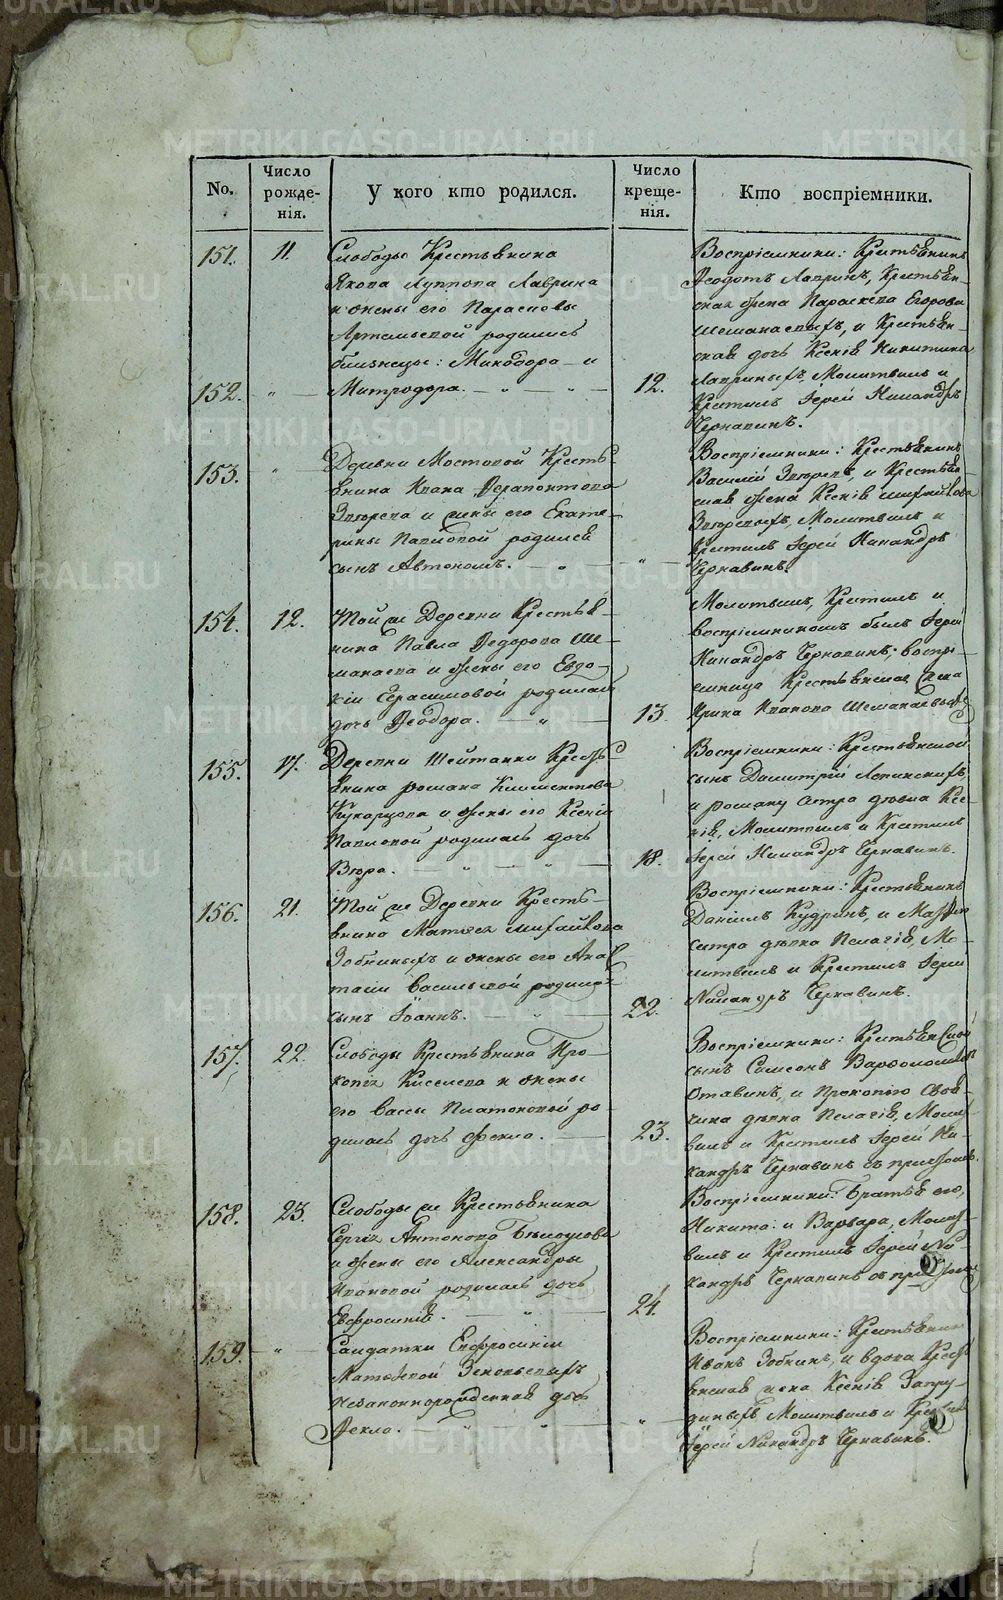 No.
Число рожде-нія.
У кого кто родился.
Число креще-нія.
Кто воспріемники.
151.
11.
Слободы Крестьянина
Якова Луппова Лаврина
и жены его Парасковьи
родились
близнецы: Минодора и
152.
Митродора.
12.
Воспріемники: Крестьянинъ
Ѳеодотъ Лавринъ, Крестьян-
ская жена Параскева Егорова
Шеманаевыхъ, и Крестьян-
ская дочь Ксенія Никитина
Лавриныхъ, Молитвилъ и
Крестилъ Іерей Никандръ
Чернавинъ.
153.
Деревни Мостовой Кресть-
янина Ивана Ѳерапонтова
и жены его Екате-
рины Павловой родился
сынъ Автономъ.
Воспріемники: Крестьянинъ
Василій и Крестьян-
ская жена Ксенія Михайлова
Молитвилъ и
Крестилъ Іерей Никандръ
Чернавинъ.
154.
12.
Той же Деревни Крестья-
нина Павла Ѳедорова Ше-
манаева и жены его Евдо-
кіи Герасимовой родилась
дочь Ѳеодора.
13.
Молитвилъ, Крестилъ и
воспріемникомъ былъ Іерей
Никандръ Чернавинъ; воспрі-
емница Крестьянская жена
Ирина Иванова Шеманаевыхъ
155.
17.
Деревни Шейтанки Кресть-
янина Романа Климентова
и жены его Ксеніи
Павловой родилась дочь
18.
Воспріемники: Крестьянской
сынъ Димитрій
и Роману сестра дѣвка Ксе-
нія, Молитвилъ и Крестилъ
Іерей Никандръ Чернавинъ.
156.
21.
Той же Деревни Кресть-
янина Матвея Михайлова
Зобниныхъ и жены его Анас-
тасіи Васильевой родился
сынъ Іоаннъ.
22.
Воспріемники: Крестьянинъ
Даніилъ Кудринъ, и Матвею
сестра дѣвка Пелагія, Мо-
литвилъ и Крестилъ Іерей
Никандръ Чернавинъ.
157.
22.
Слободы Крестьянина Про-
копія Киселева и жены
его Вассы Платоновой ро-
дилась дочь Фекла.
23.
Воспріемники: Крестьянской
сынъ Симеонъ Варѳоломеевъ
и Прокопію своя-
чина дѣвка Пелагія, Молит-
вилъ и Крестилъ Іерей Ни-
кандръ Чернавинъ съ причтомъ.
158.
23.
Слободы же Крестьянина
Сергія Антонова Бѣлоусова
и жены его Александры
Ивановой родилась дочь
Евфросинія.
24.
Воспріемники: Братья его,
Никита и Варвара, Молит-
вилъ и Крестилъ Іерей Ни-
кандръ Чернавинъ съ причтомъ
159.
Солдатки Евфросиніи
Зеновьевыхъ
незаконнорожденная дочь
Ѳекла.
Воспріемники: Крестьянинъ
Иванъ Зобнинъ, и вдова Кресть-
янская жена Ксенія Запру-
диныхъ Молитвилъ и Крестилъ
Іерей Никандръ Чернавинъ.
METRIKI.GASO-URAL.RU